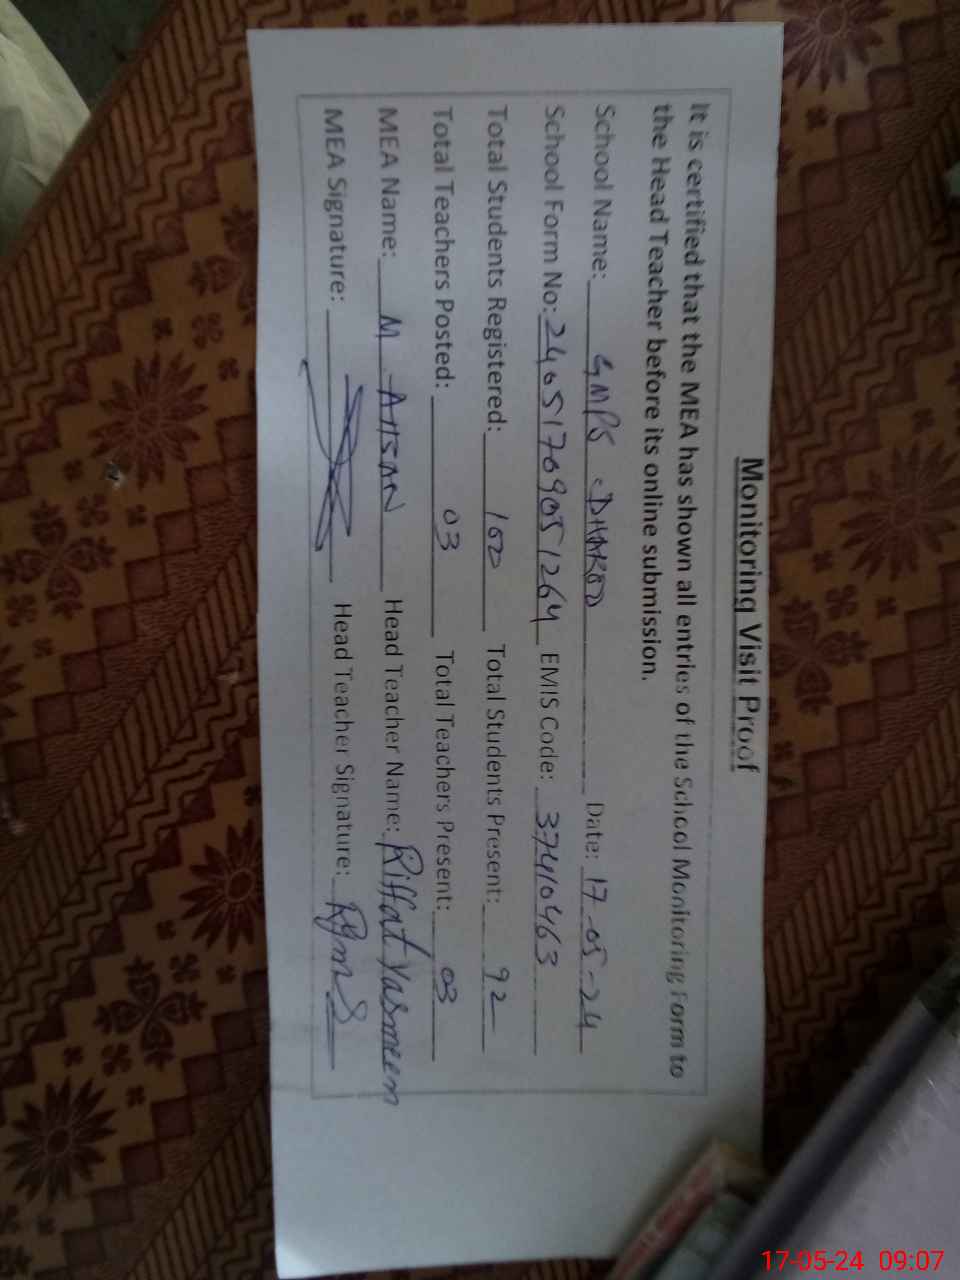 Monitoring Visit Proof
It is certified that the MEA has shown all entries of the School Monitoring Form to
the Head Teacher before its online submission.
School Name: GMPS DHAROD Date: 17-05-24
School Form No: 24051709051264 EMIS Code: 37410463
Total Students Registered: 102 Total Students Present: 92
Total Teachers Posted: 03 Total Teachers Present: 03
MEA Name: M AHSAN Head Teacher Name: Riffat Yasmeen
MEA Signature: Head Teacher Signature:
17-05-24 09:07